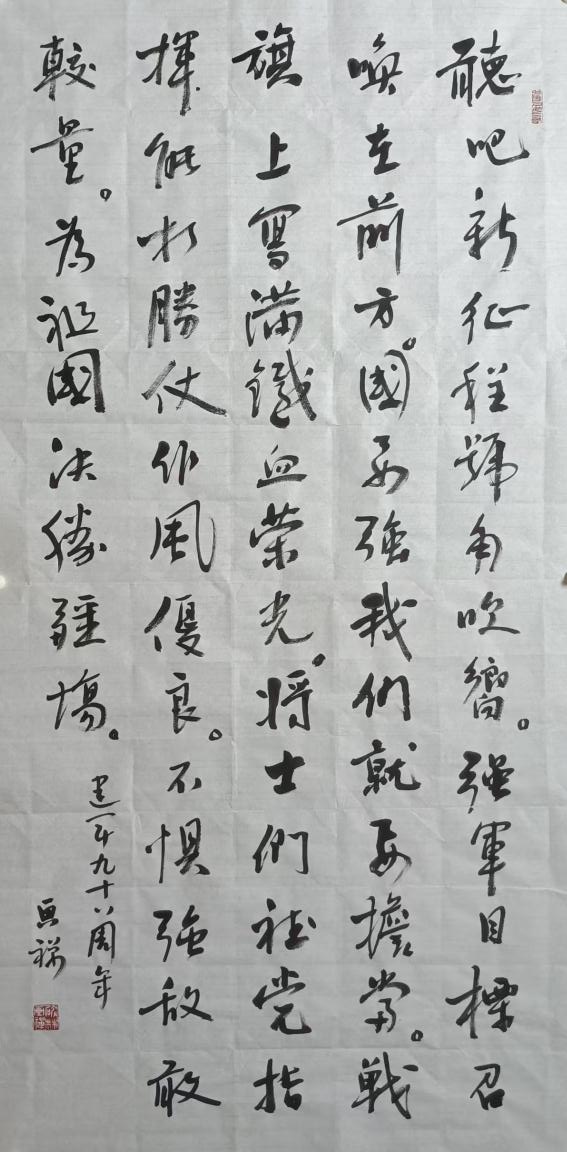 聽吧新征程號角吹嚮。強軍目標召
喚在前方。國要強我們就要擔當。戰
旗上寫滿鐵血荣光。將士們聽党指
揮能打勝仗作風優良。不懼強敵敢
較量。為祖國決勝疆場。
建军九十八周年
祥